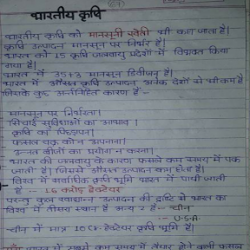 भारतीय कृषि
भारतीय कृषि को मानसूनी खेती भी कहा जाता है।
कृषि उत्पादन मानसून पर निर्भर है।
भारत को 15 कृषि जलवायु प्रदेशों में विभक्त किया
गया है।
भारत में 35+3 मानसून डिवीजन हैं।
भारत में औसत कृषि उत्पादन अनेक देशों की अपेक्षा कम है
जिसके कुछ कारण हैं -
मानसून पर निर्भरता।
सिंचाई सुविधाओं का अभाव।
कृषि का पिछड़ापन।
फसल चक्र
उन्नत बीजों का प्रयोग न करना।
भारत की जलवायु के कारण फसलें कम समय में पक
जाती हैं। जिससे औसत उत्पादन कम होता है।
विश्व में सर्वाधिक कृषि भूमि भारत में पायी जाती
है -- 16 करोड़ हेक्टेयर
परन्तु कुल उत्पादन की दृष्टि से भारत का
विश्व में तीसरा स्थान है - चीन
U.S.A
चीन में मात्र 10 हेक्टेयर कृषि भूमि है।